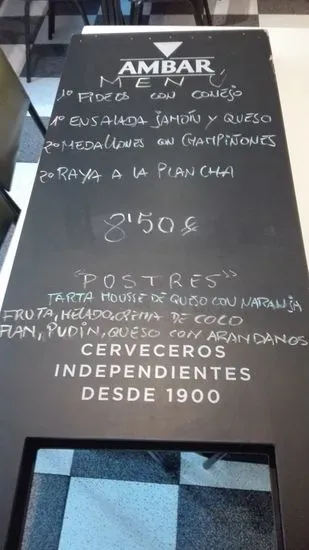 AMBAR
MENÚ
1º FIDEOS CON CONEJO
1º ENSALADA JAMÓN Y QUESO
2º MEDALLONES CON CHAMPIÑONES
2º RAYA A LA PLANCHA
8'50€
"POSTRES"
TARTA MOUSSE DE QUESO CON NARANJA
FRUTA, HELADO, CREMA DE COCO
FLAN, PUDIN, QUESO CON ARANDANOS
CERVECEROS
INDEPENDIENTES
DESDE 1900